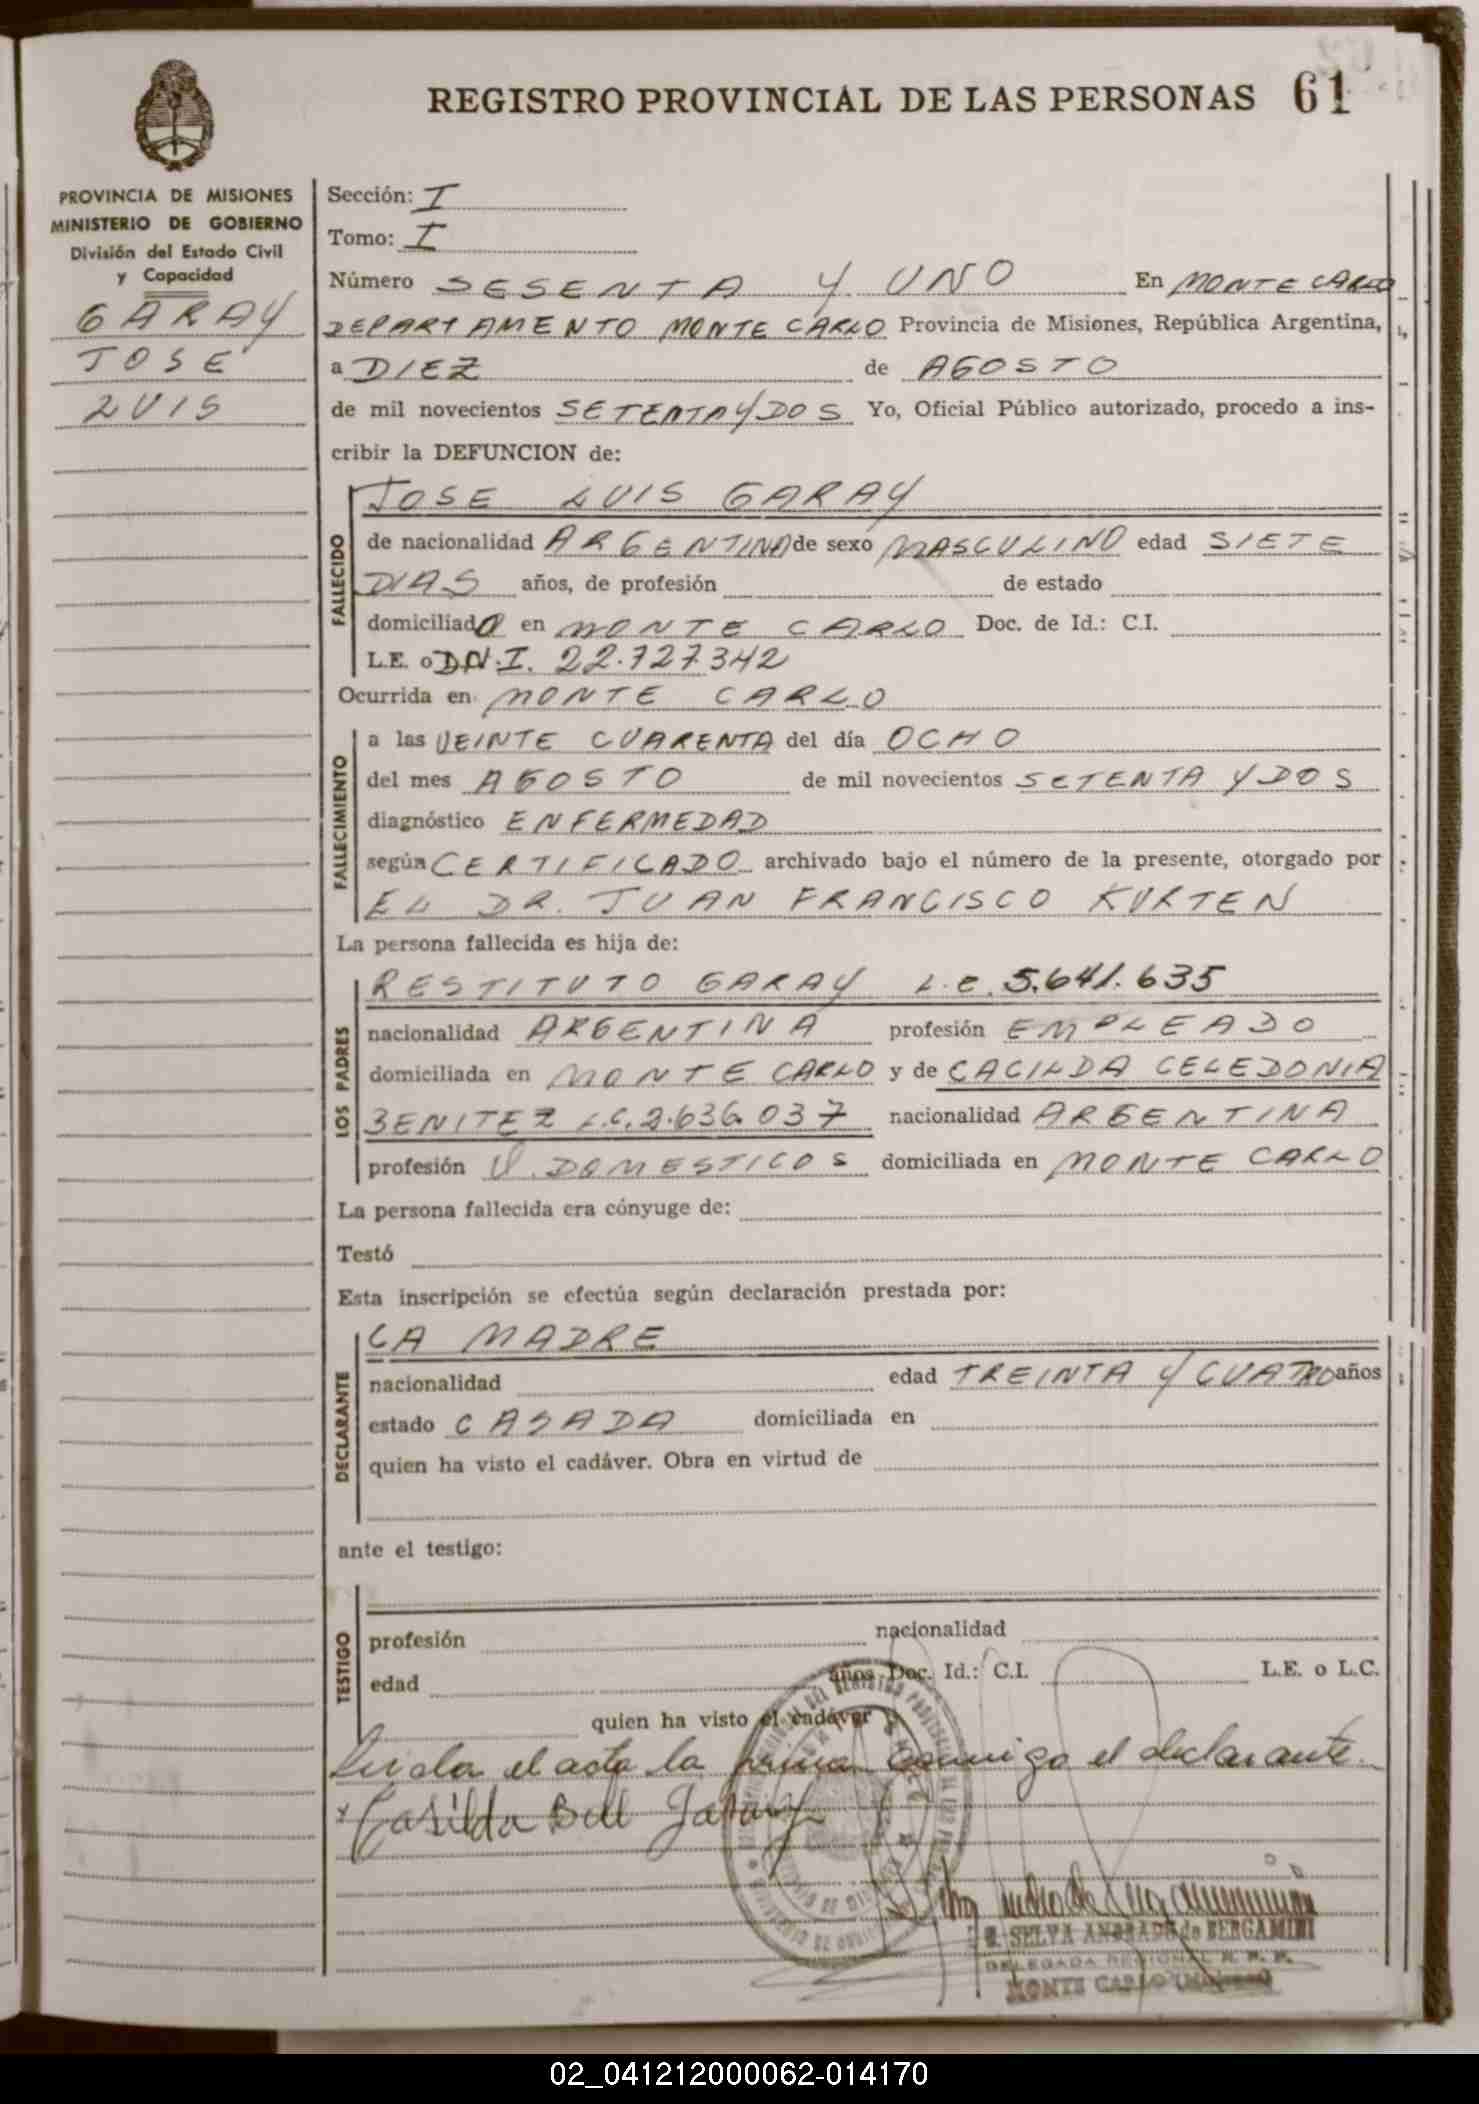 REGISTRO PROVINCIAL DE LAS PERSONAS 61
PROVINCIA DE MISIONES
MINISTERIO DE GOBIERNO
División del Estado Civil
y Capacidad
GARAY
JOSE
LUIS
Sección: I
Tomo: I
Número SESENTA Y UNO En MONTE CARLO
DEPARTAMENTO MONTE CARLO Provincia de Misiones, República Argentina,
a DIEZ de AGOSTO
de mil novecientos SETENTA Y DOS Yo, Oficial Público autorizado, procedo a ins-
cribir la DEFUNCION de:
FALLECIDO
JOSE LUIS GARAY
de nacionalidad ARGENTINA de sexo MASCULINO edad SIETE
DIAS años, de profesión de estado
domiciliado en MONTE CARLO Doc. de Id.: C.I.
L.E. o D.N.I. 22.727.342
Ocurrida en MONTE CARLO
FALLECIMIENTO
a las VEINTE CUARENTA del día OCHO
del mes AGOSTO de mil novecientos SETENTA Y DOS
diagnóstico ENFERMEDAD
según CERTIFICADO archivado bajo el número de la presente, otorgado por
EL DR. JUAN FRANCISCO KURTEN
La persona fallecida es hija de:
LOS PADRES
RESTITUTO GARAY L.E. 5.641.635
nacionalidad ARGENTINA profesión EMPLEADO
domiciliada en MONTE CARLO y de CACILDA CELEDONIA
BENITEZ L.C. 2.636.037 nacionalidad ARGENTINA
profesión Q. DOMESTICOS domiciliada en MONTE CARLO
La persona fallecida era cónyuge de:
Testó
Esta inscripción se efectúa según declaración prestada por:
DECLARANTE
LA MADRE
nacionalidad edad TREINTA Y CUATRO años
estado CASADA domiciliada en
quien ha visto el cadáver. Obra en virtud de
ante el testigo:
TESTIGO
profesión nacionalidad
edad años Doc. Id.: C.I. L.E. o L.C.
quien ha visto el cadáver
Leída el acta la firma conmigo el declarante
Casilda Garay
SELVA ANDRADE de BERGAMINI
DELEGADA REGIONAL R. P. P.
MONTE CARLO
02_041212000062-014170